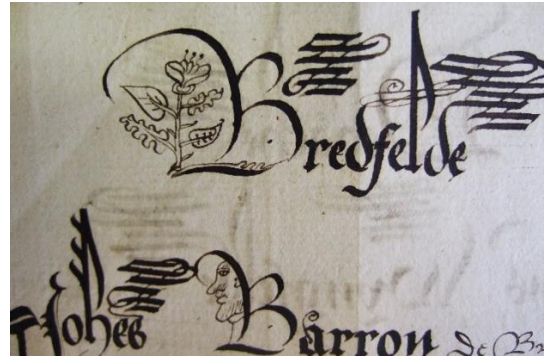 Bredfelde
Johes Barron de Br